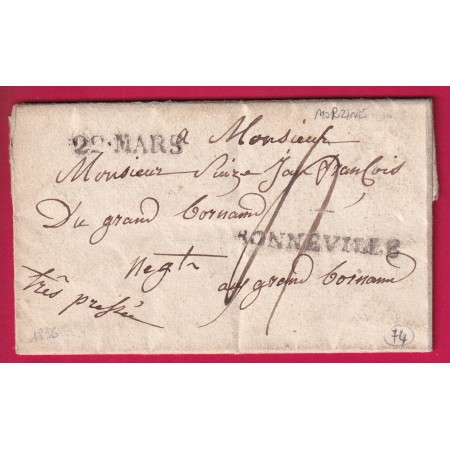 MORZINE
22·MARS
a Monsieur
Monsieur François
Du grand Bornand
BONNEVILLE
Negt au grand Bornand
très pressée
1836
74